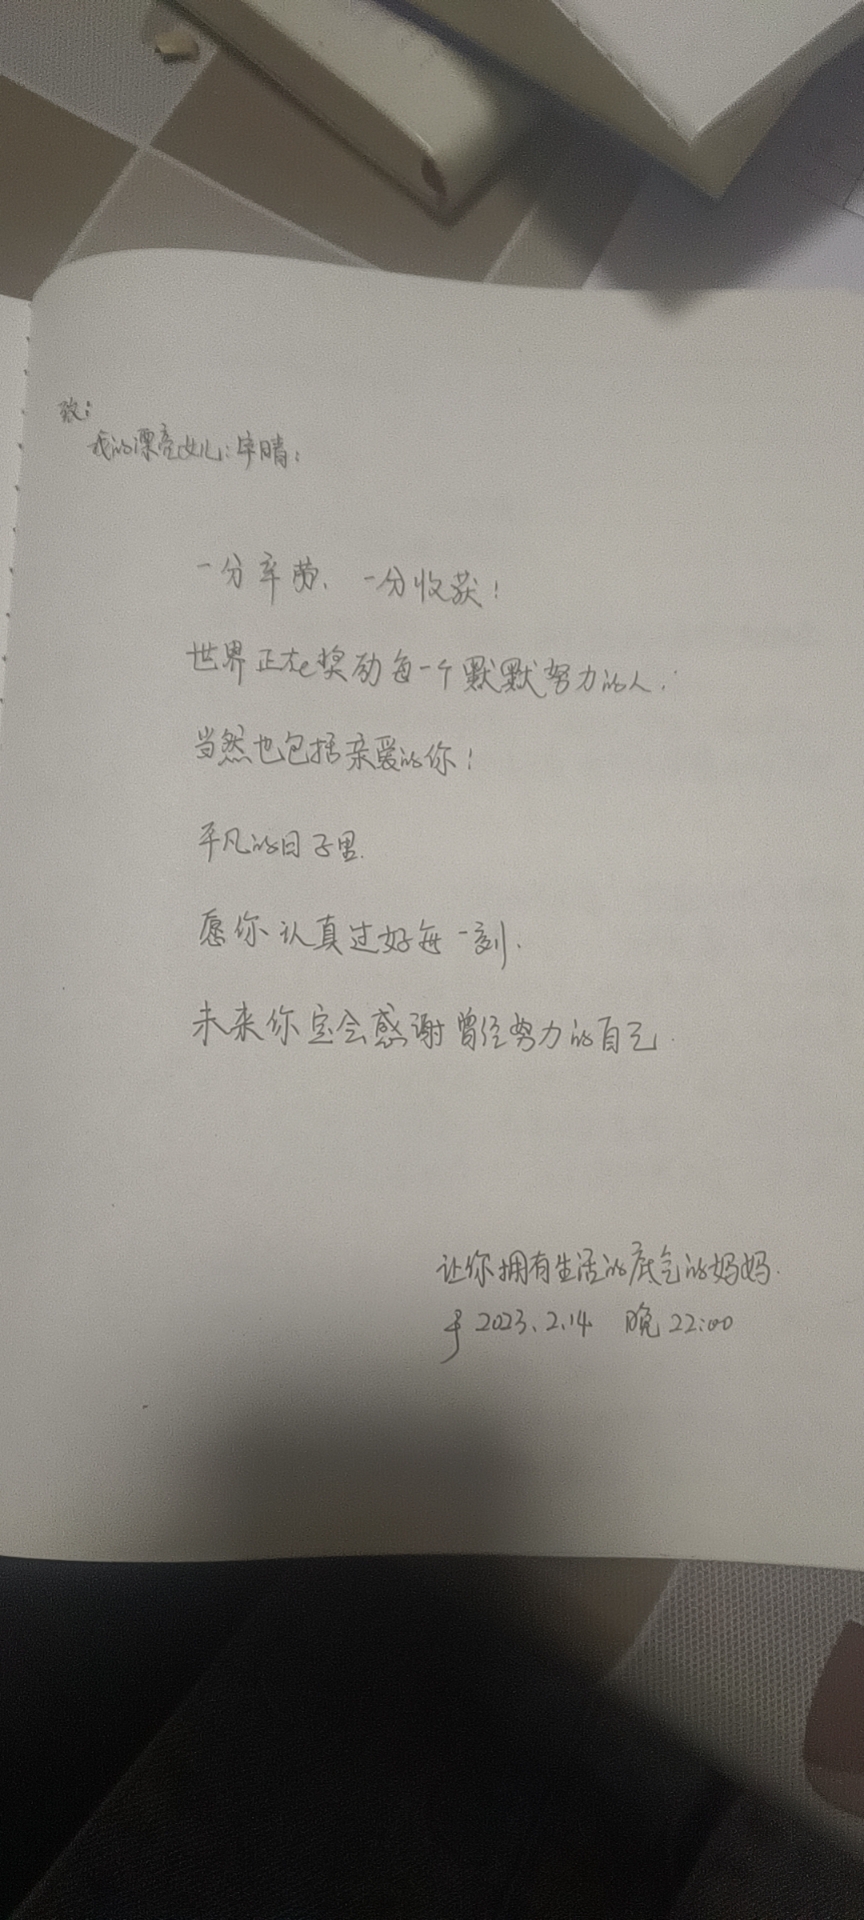 致:
我的漂亮女儿:宇晴:
一分辛劳、一分收获!
世界正在奖励每一个默默努力的人.
当然也包括亲爱的你!
平凡的日子里.
愿你认真过好每一刻.
未来你定会感谢曾经努力的自己.
让你拥有生活的底气的妈妈.
于 2023.2.14 晚 22:00